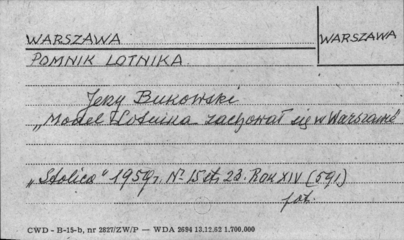 WARSZAWA
WARSZAWA
POMNIK LOTNIKA
Jerzy Bukowski
„Model Lotnika zachował się w Warszawie”
„Stolica” 1959r. Nº 15 str. 23. Rok XIV (591)
fot.
CWD - B-15-b, nr 2827/ZW/P — WDA 2694 13.12.62 1.700.000